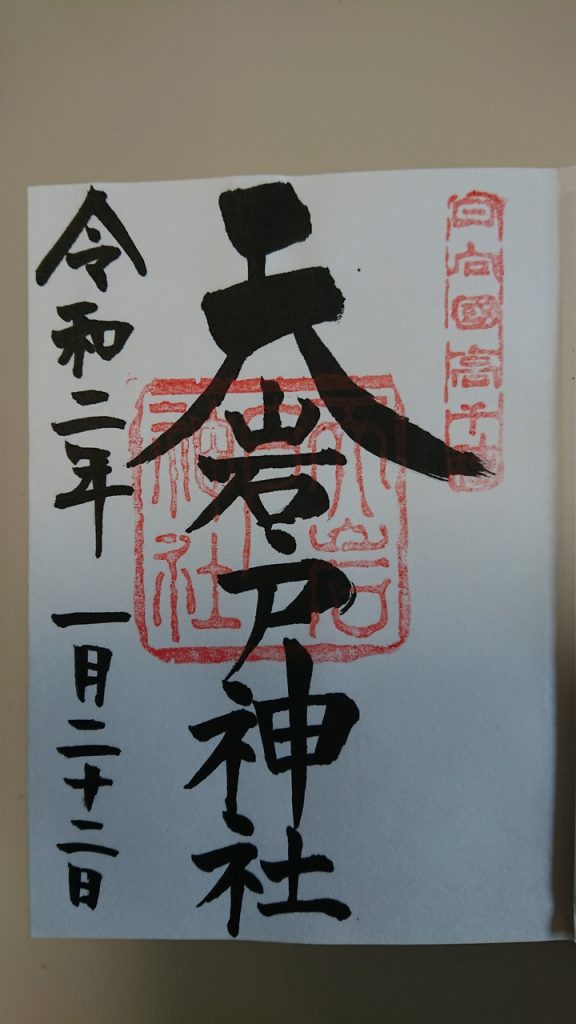 日向國高千穂
天岩戸神社
天岩戸神社
令和二年 一月二十二日